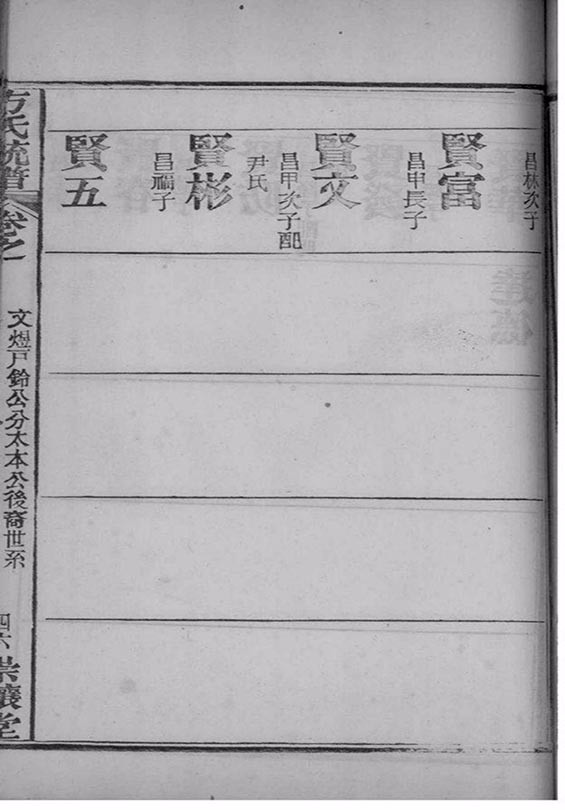 昌林次子
賢富
昌甲長子
賢文
昌甲次子配
尹氏
賢彬
昌禑子
賢五
方氏統譜 卷之一
文煜戶鈴公分太本公後裔世系
四六
崇讓堂